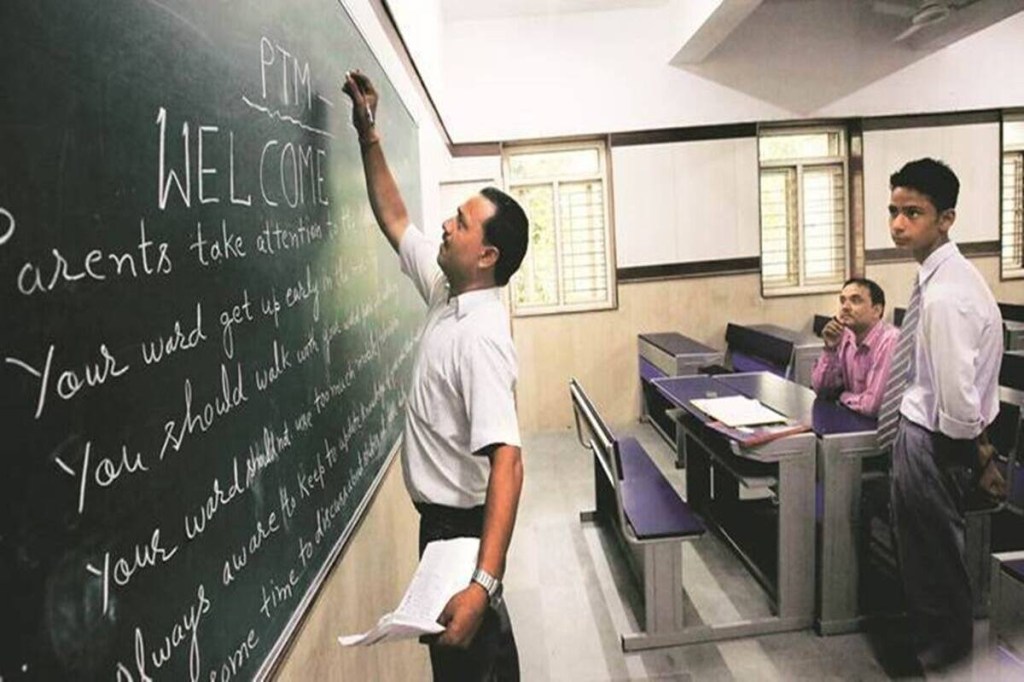 PTM -
WELCOME
Parents take attention to the
Your ward get up early in the
You should walk with your ward
Your ward should not use too much
Always aware to keep to update
some time to discuss